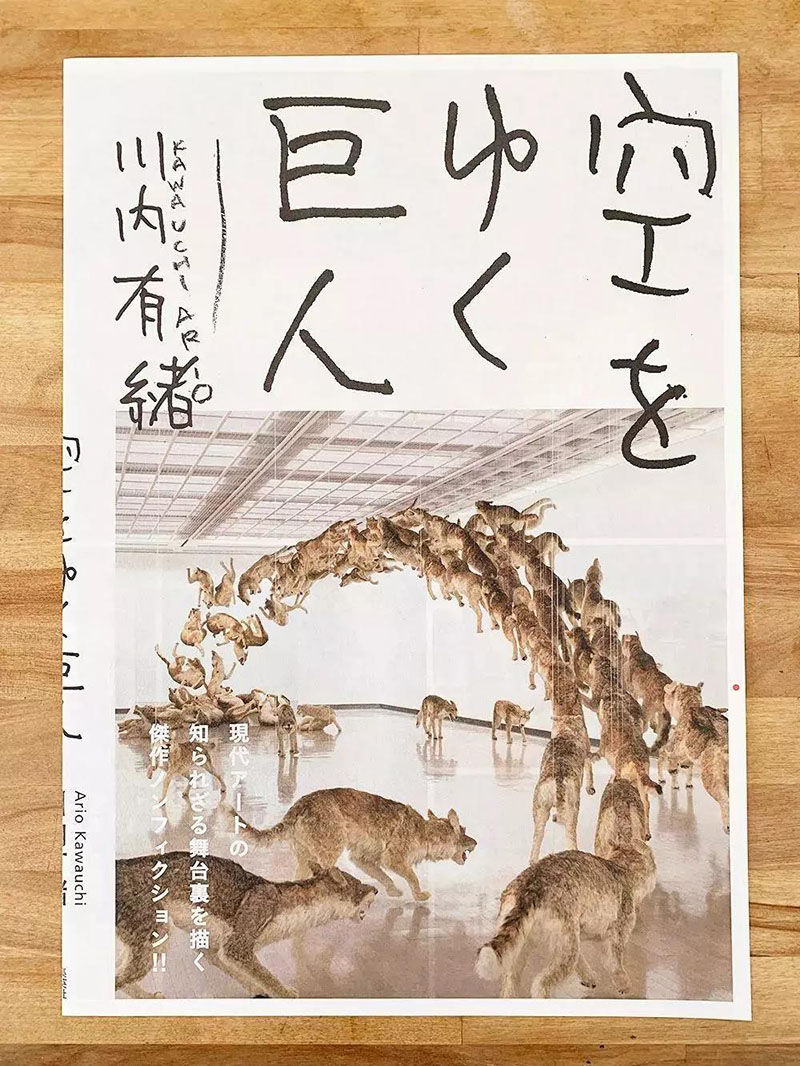 空を
ゆく
巨人
KAWAUCHI ARIO
川内有緒
現代アートの
知られざる舞台裏を描く
傑作ノンフィクション!!
Ario Kawauchi